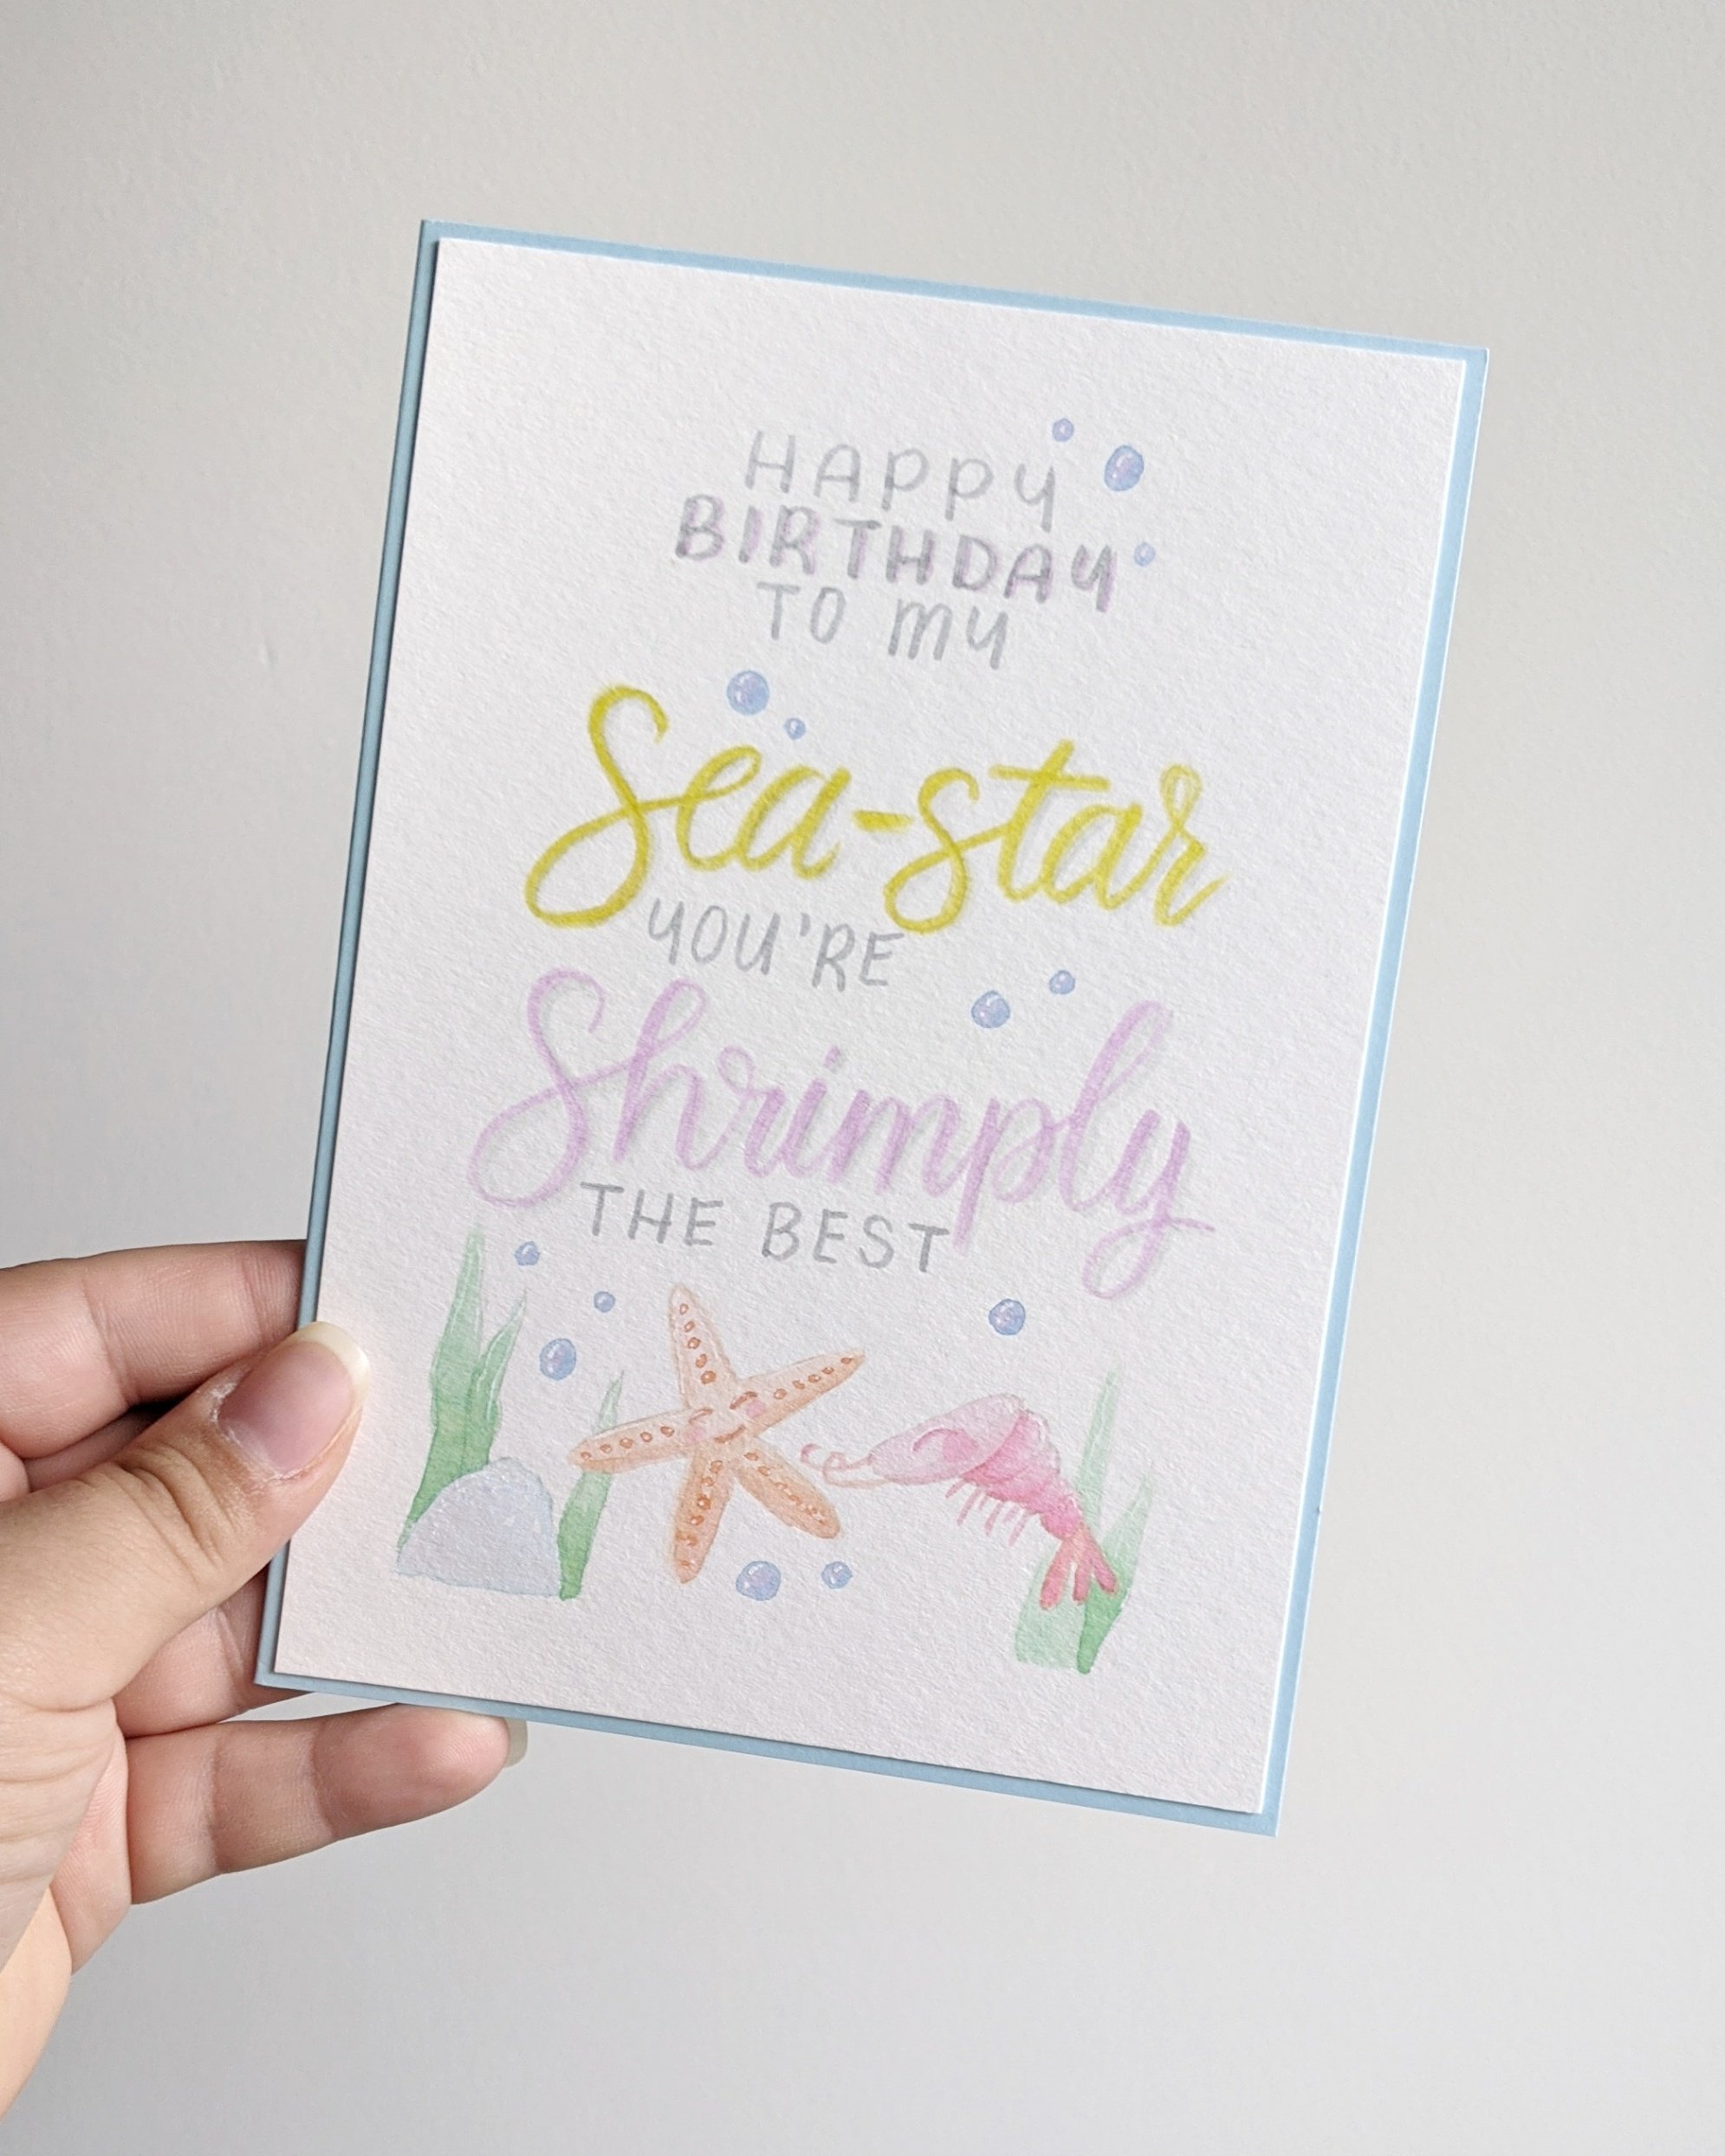 HAPPY
BIRTHDAY
TO MY
Sea-star
YOU'RE
Shrimply
THE BEST